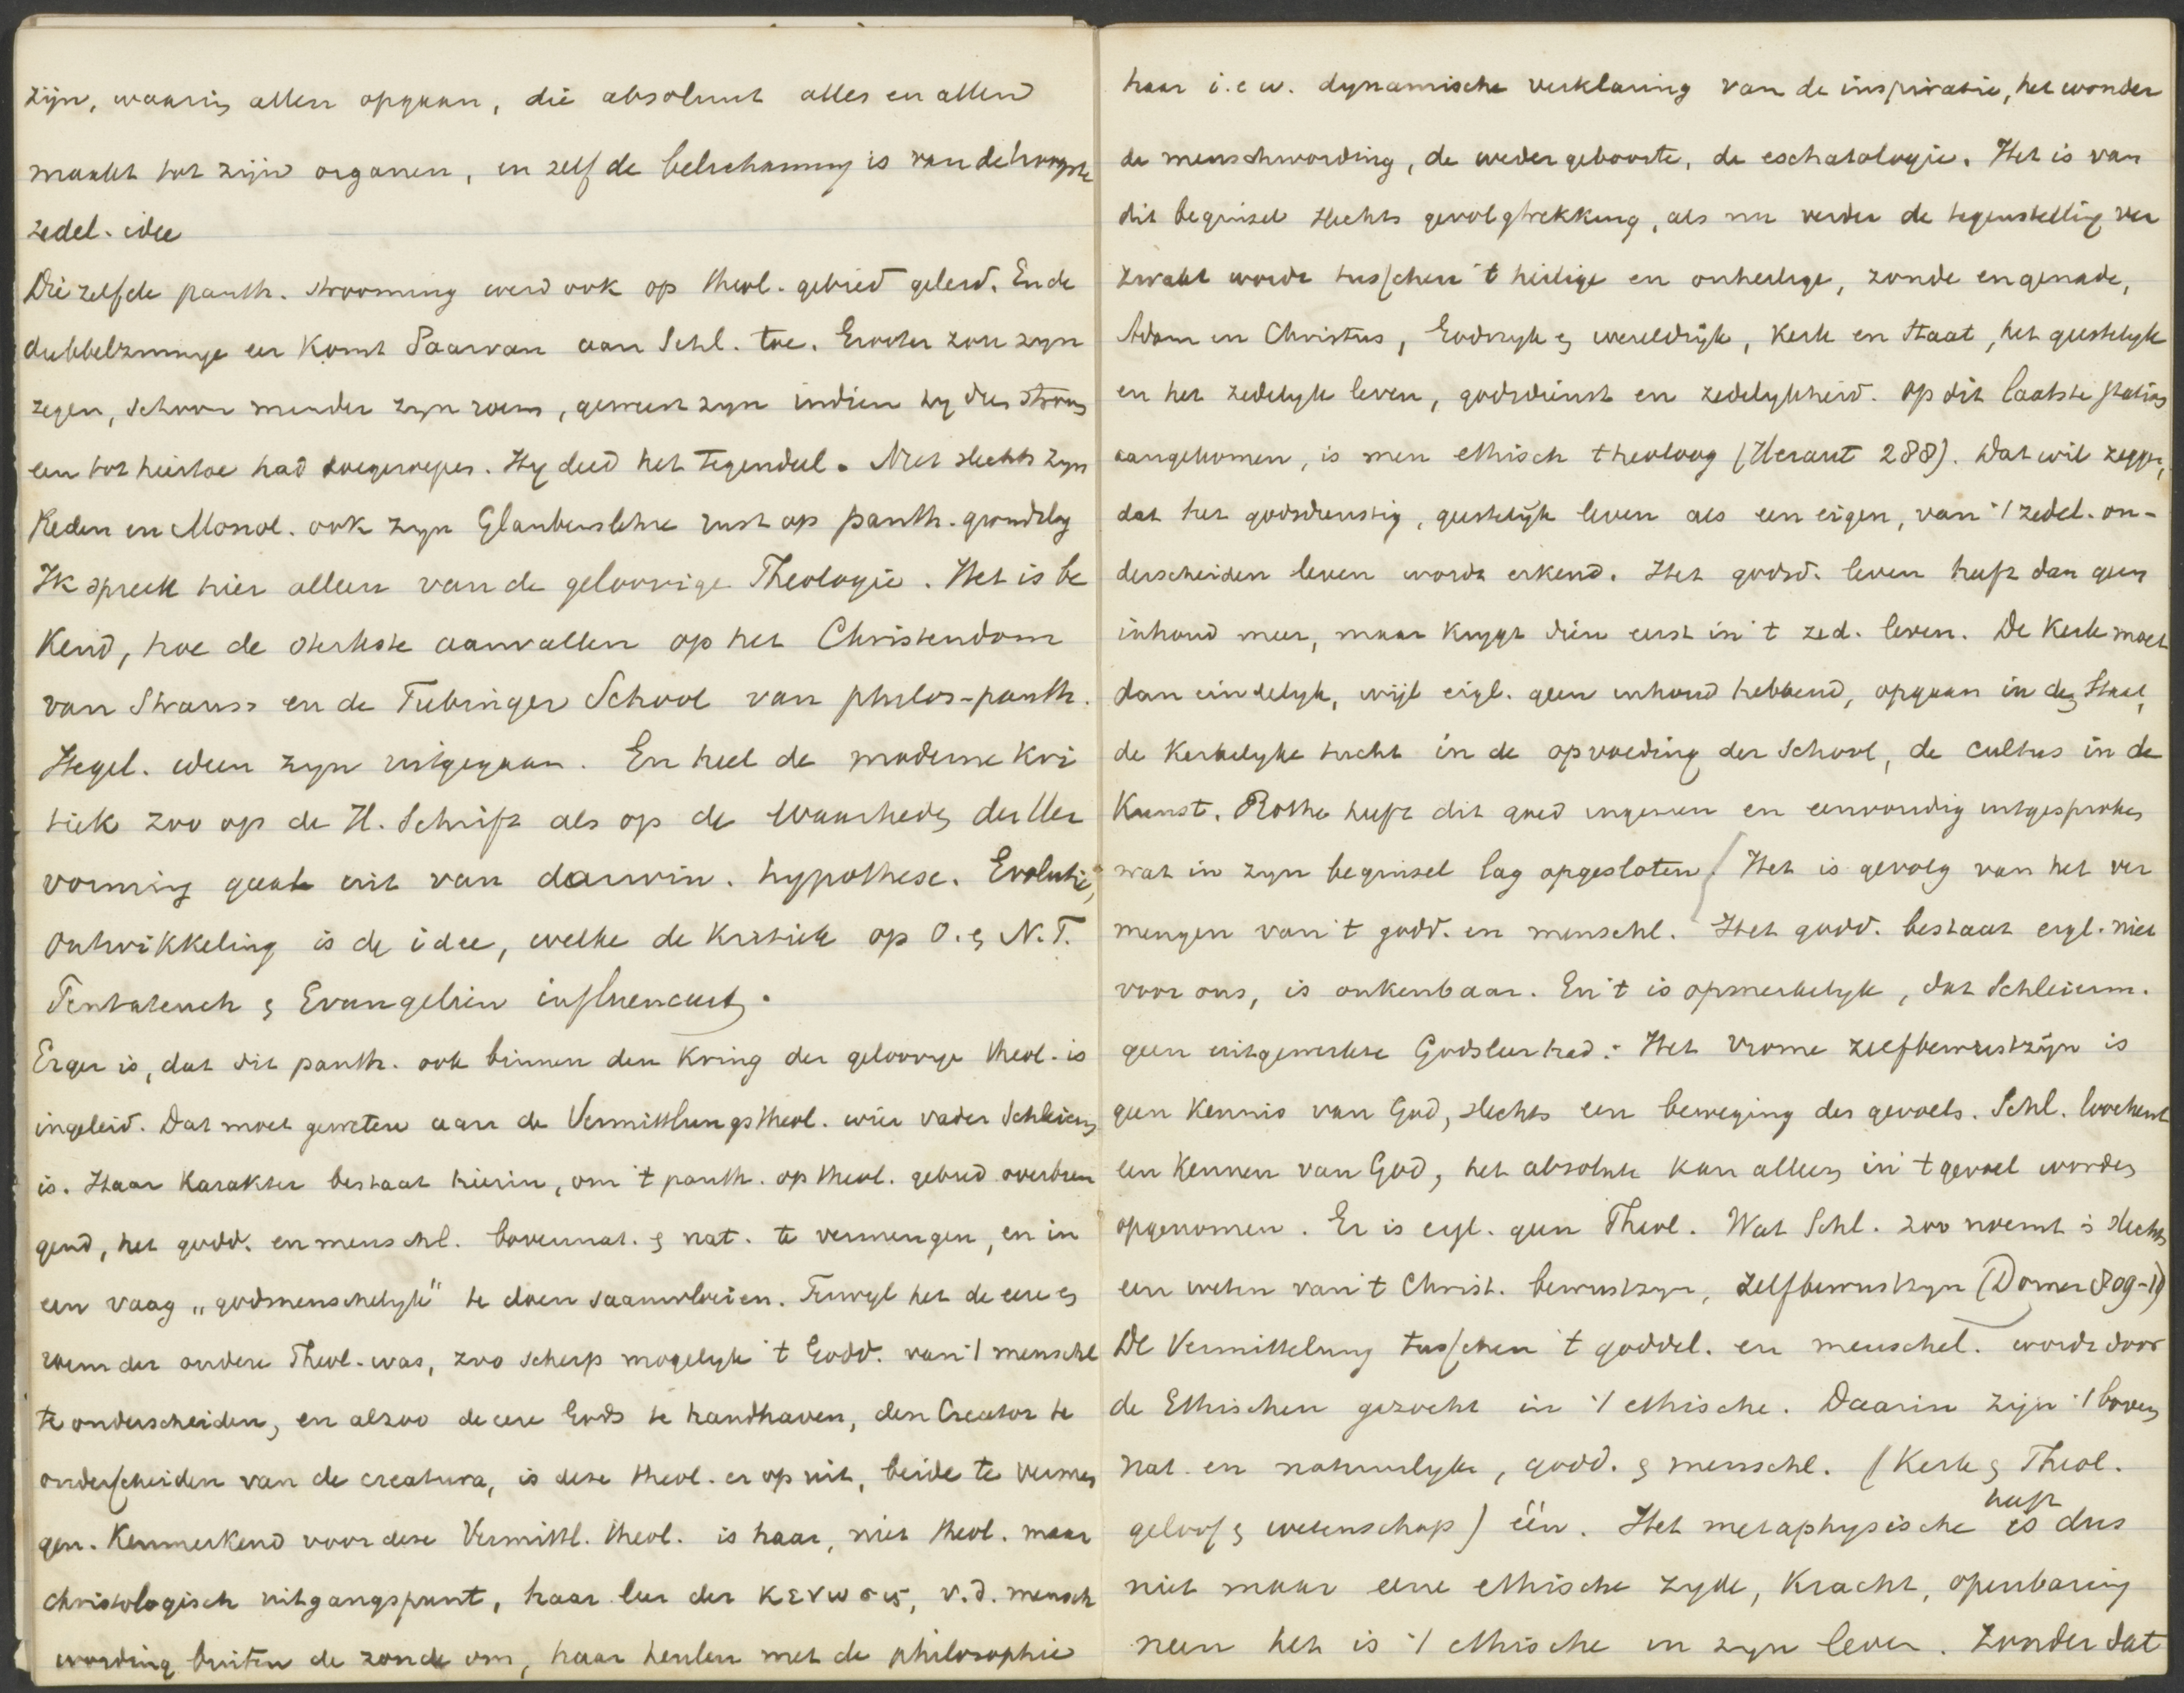 zijn, waarin allen opgaan, die absoluut alles en allen
maakt tot zijn organen, en zelf de belichaming is van de hoogste
zedel. idee
Diezelfde panth. strooming werd ook op theol. gebied geleid. En de
dubbelzinnige eer komt daarvan aan Schl. toe. Grooter zou zijn
zegen, schoon minder zijn roem, geweest zijn indien hy dies stroom
een tot hiertoe had toegeroepen. Hy deed het tegendeel. Niet slechts zyn
Reden en Monol. ook zyn Glaubenslehre rust op panth. grondslag
Ik spreek hier alleen van de geloovige Theologie. Het is be
kend, hoe de sterkste aanvallen op het Christendom
van Strauss en de Tubinger School van philos-panth.
Hegel. ideen zyn uitgegaan. En heel de moderne kri
tiek zoo op de H. Schrift als op de waarheden der Her
vorming gaat uit van darwin. hypothese. Evolutie,
ontwikkeling is de idee, welke de kritiek op O. & N.T.
Pentateuch & Evangelien influenceert.
Erger is, dat dit panth. ook binnen den kring der geloovige theol. is
ingeleid. Dat moet geweten aan de Vermittlungstheol. wier vader Schleierm
is. Haar karakter bestaat hierin, om 't panth. op theol. gebied overbren
gend, het godd. en menschl. bovennat. & nat. te vermengen, en in
een vaag „godmenschelyk" te doen saamvloeien. Terwyl het de eere en
roem der andere Theol. was, zoo scherp mogelyk 't Godd. van 't menschl
te onderscheiden, en alzoo de eere Gods te handhaven, den Creator te
onderscheiden van de creatura, is deze theol. er op uit, beide te vermen
gen. Kenmerkend voor deze Vermittl. theol. is haar, niet theol. maar
christologisch uitgangspunt, haar leer der κενωσις, v.d. mensch
wording buiten de zonde om, haar heulen met de philosophie
haar i.e.w. dynamische verklaring van de inspiratie, het wonder
de menschwording, de wedergeboorte, de eschatologie. Het is van
dit beginsel slechts gevolgtrekking, als nu verder de tegenstelling ver
zwakt wordt tusschen 't heilige en onheilige, zonde en genade,
Adam en Christus, Godsryk & wereldrijk, kerk en Staat, het geestelyk
en het zedelyk leven, godsdienst en zedelykheid. Op dit laatste station
aangekomen, is men ethisch theoloog (Heraut 288). Dat wil zeggen,
dat het godsdienstig, geestelijk leven als een eigen, van 't zedel. on-
derscheiden leven wordt erkend. Het godsd. leven heeft dan geen
inhoud meer, maar krygt dien eerst in 't zed. leven. De kerk moet
dan eindelyk, wijl eigl. geen inhoud hebbend, opgaan in den Staat,
de kerkelyke tucht in de opvoeding der School, de cultus in de
Kunst. Rothe heeft dit goed ingezien en eenvoudig uitgesproken
wat in zyn beginsel lag opgesloten. / Het is gevolg van het ver
mengen van 't godd. en menschl. Het godd. bestaat eigl. niet
voor ons, is onkenbaar. En 't is opmerkelyk, dat Schleierm.
geen uitgewerkte Godsleer had. Het vrome zelfbewustzijn is
geen kennis van God, slechts een beweging des gevoels. Schl. loochent
een kennen van God, het absolute kan alleen in 't gevoel worden
opgenomen. Er is eigl. geen Theol. Wat Schl. zoo noemt is slechts
een weten van 't Christ. bewustzyn, zelfbewustzyn (Dorner 809-11)
De Vermittelung tusschen 't goddel. en menschel. wordt door
de Ethischen gezocht in 't ethische. Daarin zijn 't boven
nat. en natuurlyke, godd. & menschl. (Kerk & Theol.
geloof & wetenschap) één. Het metaphysische heeft is dus
niet maar eene ethische zyde, kracht, openbaring
neen het is 't ethische in zyn leven. Zonder dat